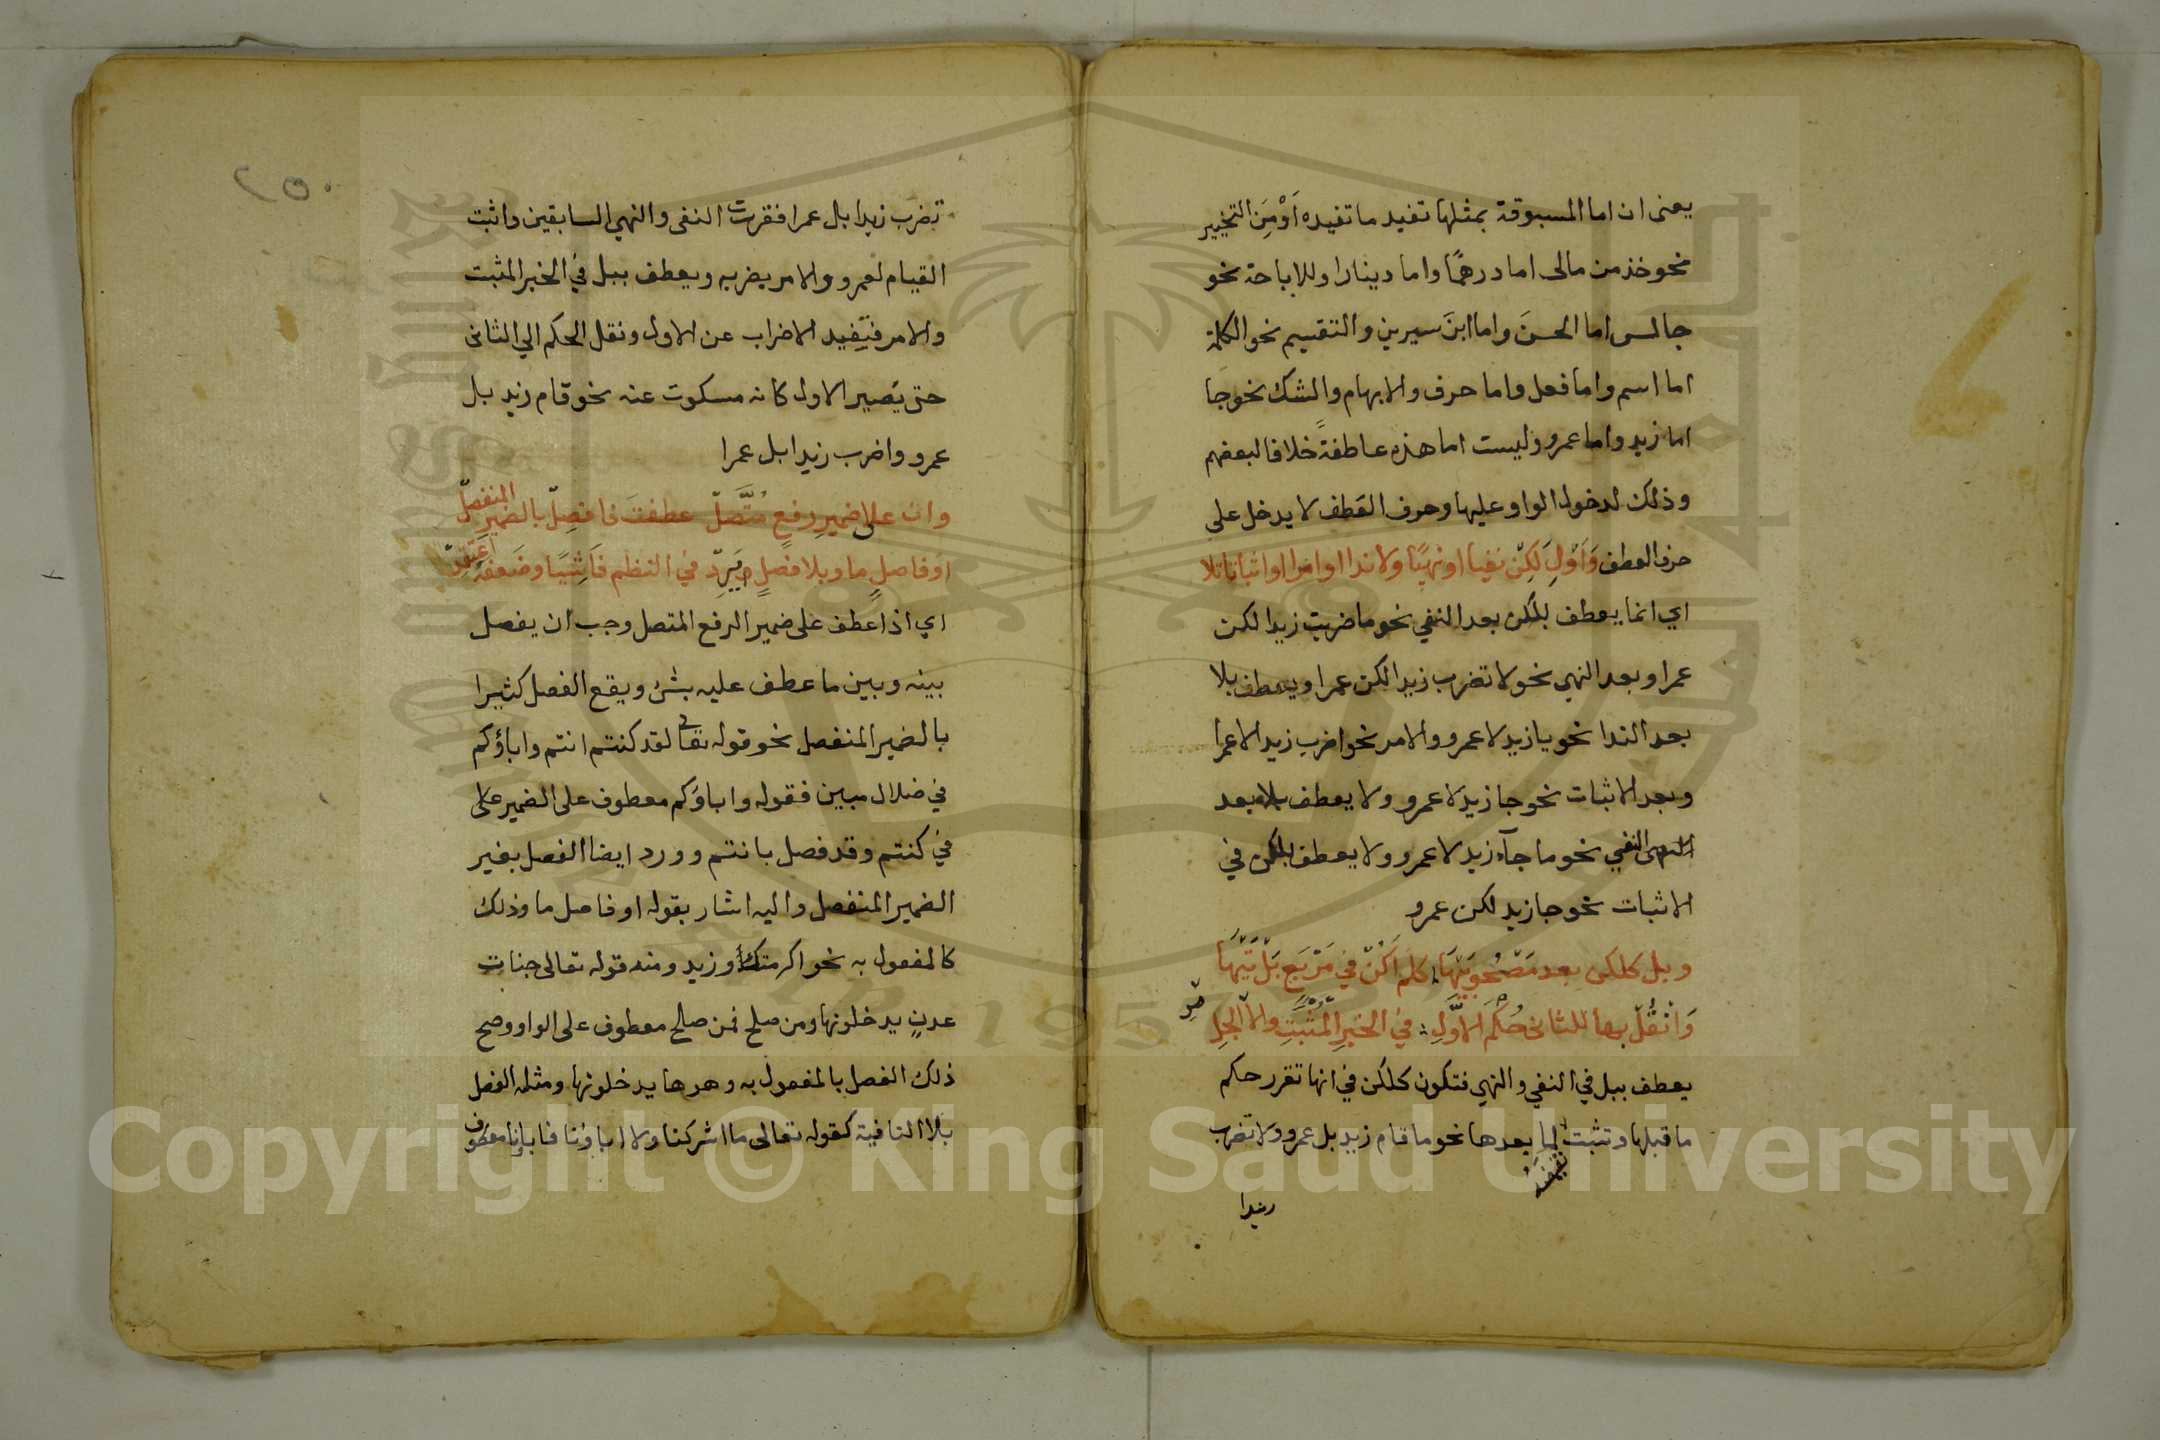 يعنى ان اما المسبوقة بمثلها تفيد ما تفيده اَوْ مِنَ التخيير
نحو خذ من مالى اما درهمًا واما دينارا وللاباحة نحو
جالس اما الحسنَ واما ابنَ سيرين والتقسيم نحو الكلمة
اما اسم واما فعل واما حرف والابهام والشك نحو جا
اما زيد واما عمرو وليست اما هذه عاطفةً خلافا لبعضهم
وذلك لدخول الواو عليها وحرف العطف لا يدخل على
حرف العطف وَاَوْلِ لَكِنْ نفيا او نهيًا ولا ندا او امرا او اثباتا تلا
اي انما يعطف بلكن بعد النفي نحو ما ضربت زيدا لكن
عمرا وبعد النهي نحو لا تضرب زيدا لكن عمرا ويعطف بلا
بعد الندا نحو يا زيد لا عمرو والامر نحو اضرب زيدا لا عمرا
وبعد الاثبات نحو جا زيد لا عمرو ولا يعطف بلا بعد
النفي نحو ما جآء زيد لا عمرو ولا يعطف بلكن في
الاثبات نحو جا زيد لكن عمرو
وبل كلكن بعد مَصْحُوبَيْهَا كلم اَكُنْ في مَرْبَعٍ بَلْ تَيْهَا
وَانْقُلْ بها للثانى حُكْمَ الاَوَّلِ في الخبرِ الْمُثْبَتِ والاَمْرِ الجلِى
يعطف ببل في النفي والنهي فتكون كلكن في انها تقرر حكم
ما قبلها وتثبت نقيضه لما بعدها نحو ما قام زيد بل عمرو ولا تضرب
زيدا
٢٥٠
تضرب زيدا بل عمرا فقررت النفى والنهي السابقين واثبت
القيام لعمرو والامر بضربه ويعطف ببل في الخبر المثبت
والامر فتفيد الاضراب عن الاول ونقل الحكم الي الثانى
حتى يصير الاول كانه مسكوت عنه نحو قام زيد بل
عمرو واضرب زيدا بل عمرا
وان على ضميرِ رفعٍ مُتَّصلْ عطفتَ فافصِلْ بالضميرِ المنفصلْ
او فاصلٍ ما وبلا فصلٍ يَرِدْ في النظم فَاشِيًا وضعفَهُ اعتقِدْ
اي اذا عطف على ضمير الرفع المتصل وجب ان يفصل
بينه وبين ما عطف عليه بشئ ويقع الفصل كثيرا
بالضمير المنفصل نحو قوله تعالى لقد كنتم انتم واباؤكم
في ضلال مبين فقوله واباؤكم معطوف على الضمير
في كنتم وقد فصل بانتم وورد ايضا الفصل بغير
الضمير المنفصل واليه اشار بقوله او فاصل ما وذلك
كالمفعول به نحو اكرمتك وزيد ومنه قوله تعالى جنات
عدنٍ يدخلونها ومن صلح فمن صلح معطوف على الواو وصح
ذلك الفصل بالمفعول به وهو ها يدخلونها ومثله الفصل
بلا النافية كقوله تعالى ما اشركنا ولا اباؤنا فاباؤنا معطوف
Copyright © King Saud University
1957